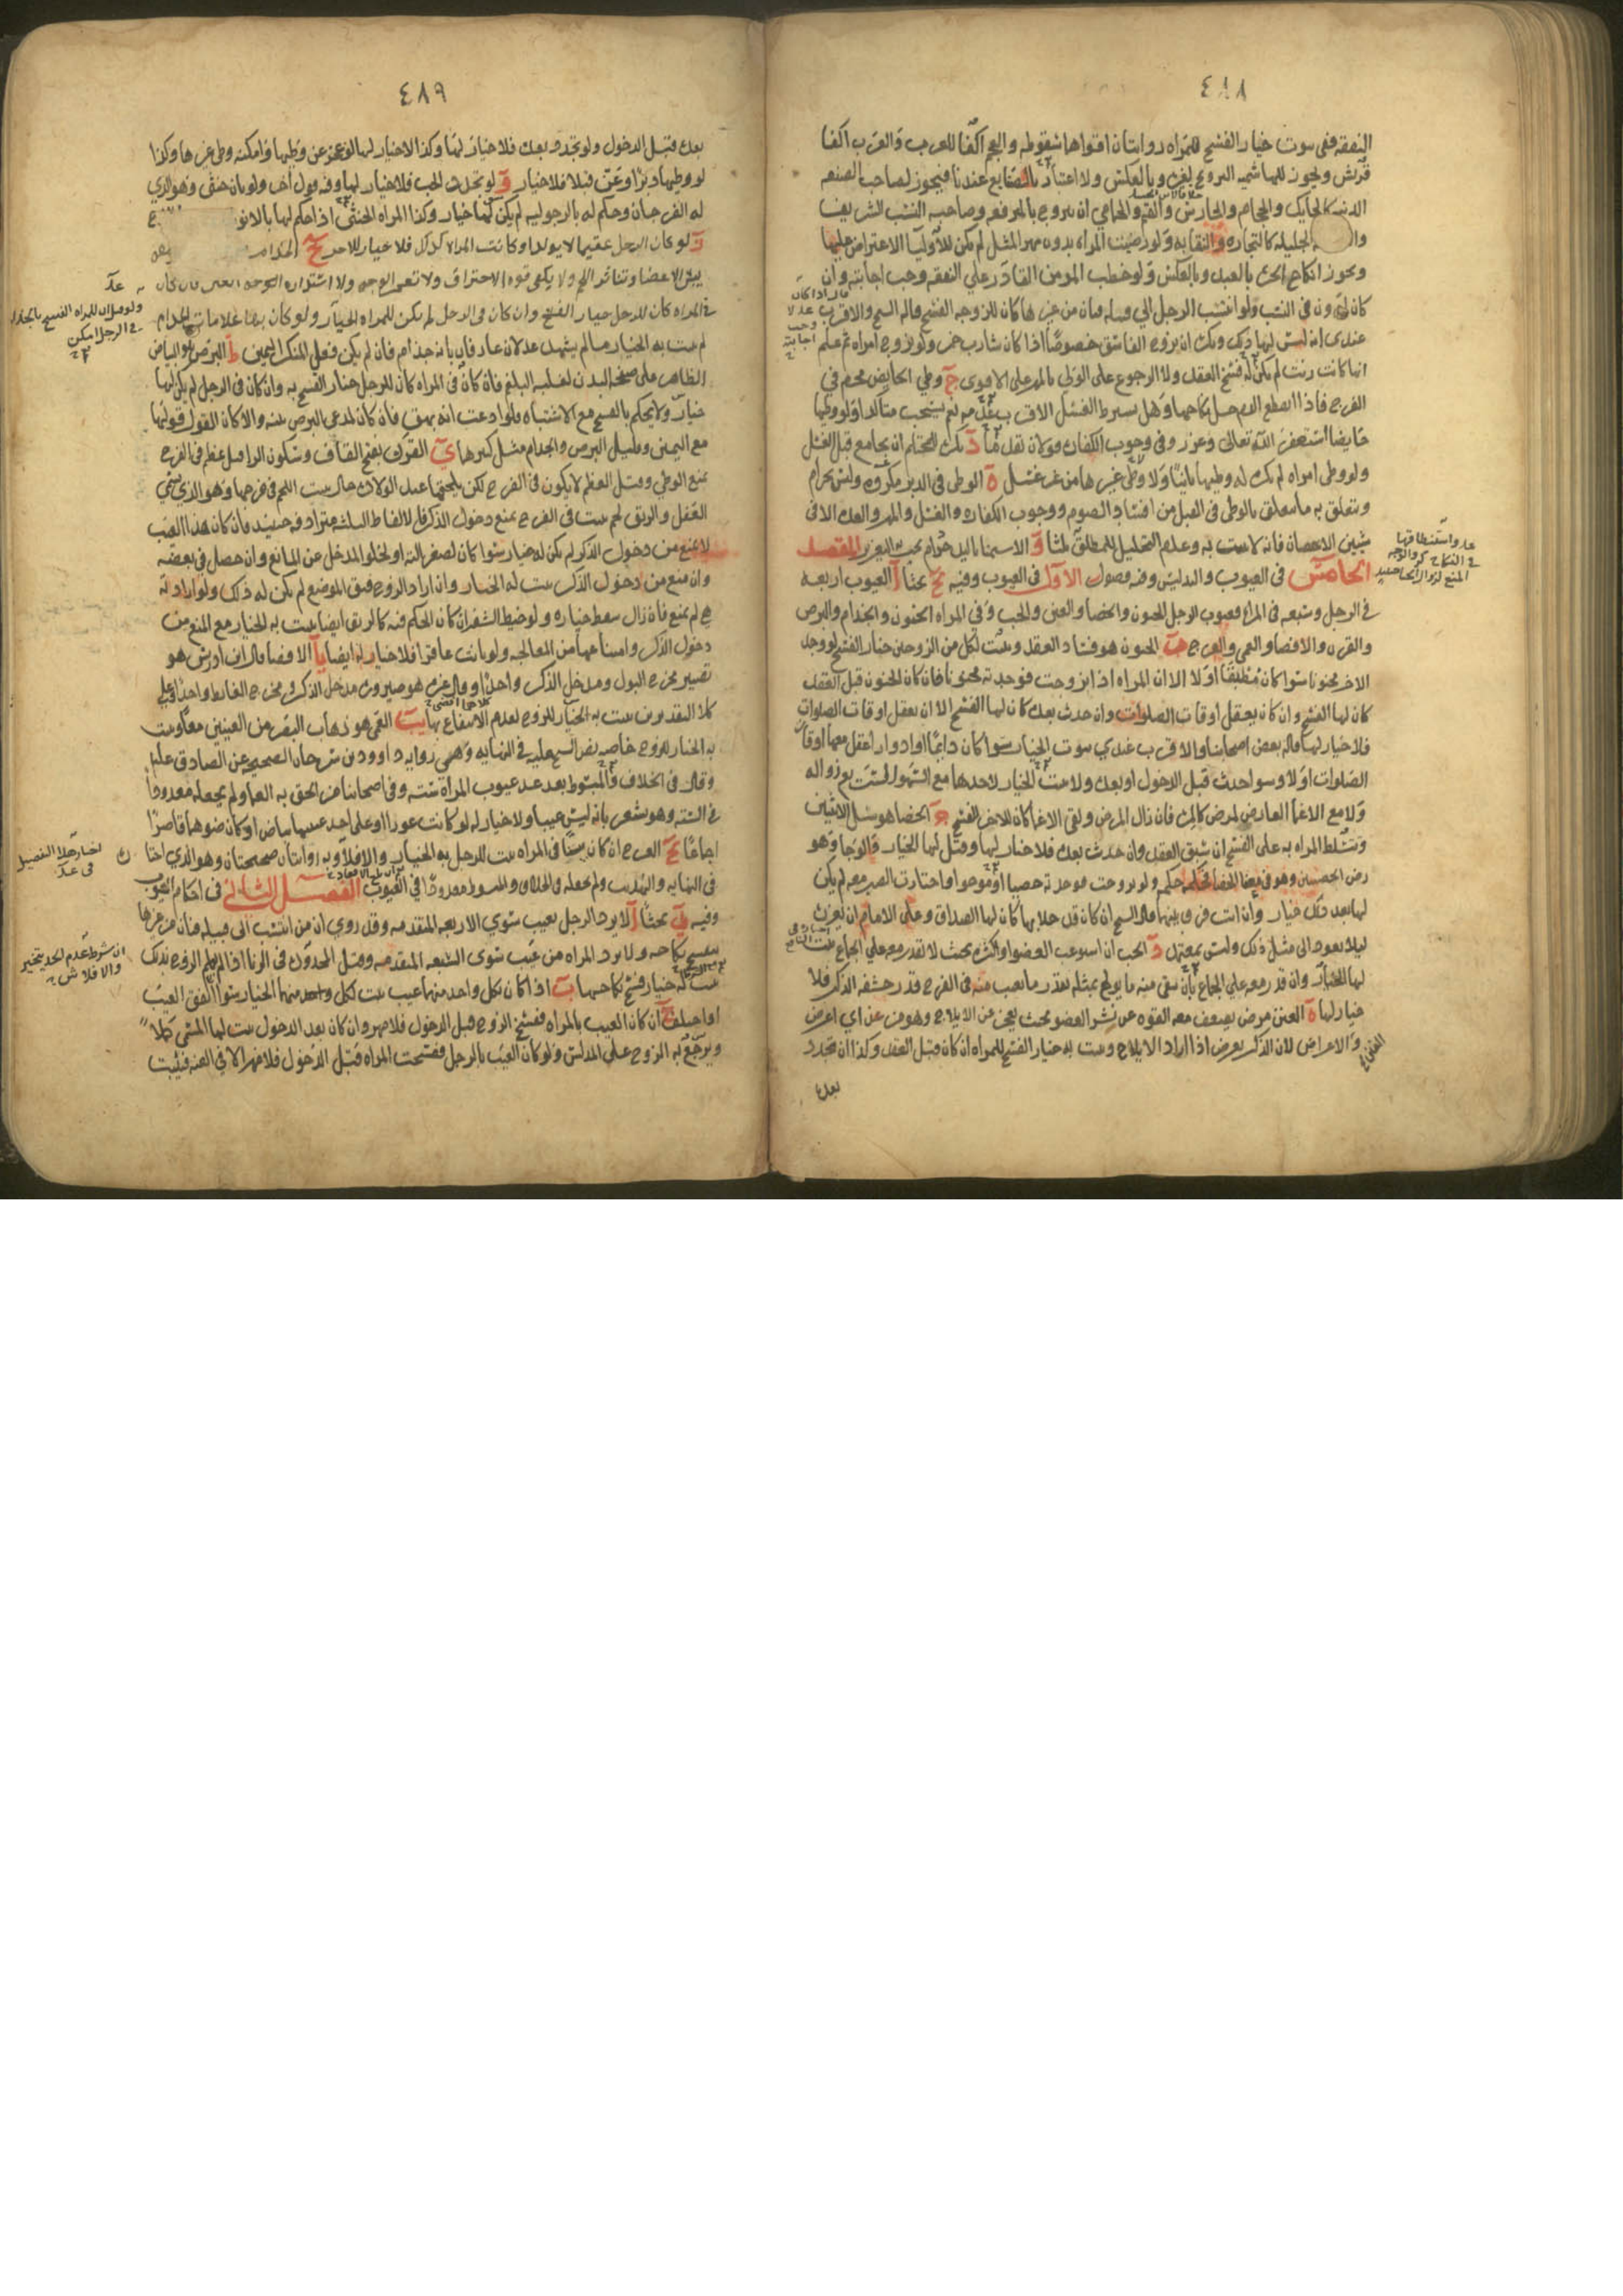 ٤٨٨
النفقه ففى ثبوت خيار الفسخ للمراه روايتان اقواهما سقوطه والعجم اكفا للعرب والعرب اكفا
قريش ويجوز للهاشميه التزويج بغيره وبالعكس ولا اعتبار بالصنايع عندنا فيجوز لصاحب الصنعه
الدنيه كالحايك والحجام والحارس والقيم والحمامي ان يتزوج بالمرفعه وصاحبه النسب الشريف
الجليله كالتجاره والنقابه ولو رضيت المراه بدون مهر المثل لم يكن للاوليا الاعتراض عليها
ويجوز انكاح الحره بالعبد وبالعكس ولو خطب المومن القادر على النفقه وجب اجابته وان
كان ادون فى النسب ولو انتسب الرجل الى قبيله فبان من غيرها كان للزوجه الفسخ قاله الشيخ والاقرب
عندى انه ليس لها ذلك ويكره ان يزوج الفاسق خصوصا اذا كان شارب خمر ولو تزوج امراه ثم علم
انها كانت زنت لم يكن له فسخ العقد ولا الرجوع على الولى بالمهر على الاقوى ج وطي الحايض محرم في
الفرج فاذا انقطع الدم حل نكاحها وهل يشترط الغسل الاقرب عدمه نعم يستحب متاكدا ولو وطيها
حايضا استغفر الله تعالى وعزر وفى وجوب الكفاره قولان تقدما د يكره للمحتلم ان يجامع قبل الغسل
ولو وطى امراه لم يكره له وطيها ثانيا ولا وطى غيرها من غير غسل ه الوطى فى الدبر مكروه وليس بحرام
ويتعلق به ما يتعلق بالوطى فى القبل من افساد الصوم ووجوب الكفاره والغسل والمهر والعده الا فى
شيين الاحصان فانه لا يثبت به وعدم التحليل للمطلق ثلثا و الاستمنا باليد حرام يجب به التعزير المقصد
الخامس فى العيوب والتدليس وفيه فصول الاول فى العيوب وفيه يج بحثا ا العيوب اربعه
فى الرجل وسبعه فى المراه فعيوب الرجل الجنون والخصا والعنن والجب وفى المراه الجنون والجذام والبرص
والقرن والافضا والعمى والعرج ب الجنون هو فساد العقل ويثبت لكل من الزوجين خيار الفسخ لو وجد
الاخر مجنونا سوا كان مطبقا او لا الا ان المراه اذا تزوجت فوجدته مجنونا فان كان الجنون قبل العقد
كان لها الفسخ وان كان يعقل اوقات الصلوات وان حدث بعده كان لها الفسخ الا ان يعقل اوقات الصلوات
فلا خيار لها قاله بعض اصحابنا والاقرب عندي ثبوت الخيار سوا كان دايما او ادوارا عقل معها اوقات
الصلوات او لا وسوا حدث قبل الدخول او بعده ولا يثبت الخيار لاحدهما مع السهو المستتبع زواله
ولا مع الاغما العارض لمرض كالمره فان زال المرض وبقى الاغما كان للاخر الفسخ ج الخصا هو سل الانثيين
وتتسلط المراه به على الفسخ ان سبق العقد وان حدث بعده فلا خيار لها وقيل لها الخيار والوجا وهو
رض الخصيتين وهو فى معنا الخصا فحكمه حكمه ولو تزوجت فوجدته خصيا او موجوا واختارت الصبر معه لم يكن
لها بعد ذلك خيار وان ابت فرق بينهما قال الشيخ ان كان قد خلا بها كان لها الصداق وعلى الامام ان يعزره
ليلا يعود الى مثل ذلك وليس بمعتمد د الجب ان استوعب العضو او اكثره بحيث لا تقدر معه على الجماع ثبت
لها الخيار وان قدر معه على الجماع بان بقى منه ما يولج بمثله بقدر ما يغيب منه فى الفرج قدر حشفه الذكر فلا
خيار لها ه العنن مرض يضعف معه القوه عن نشر العضو بحيث يعجز عن الايلاج وهو من عن اي اعترض
والاعراض لان الذكر يعرض اذا اراد الايلاج ويثبت به خيار الفسخ للمراه ان كان قبل العقد وكذا ان تجدد
بعده
٤٨٩
بعده قبل الدخول ولو تجدد بعده فلا خيار لها وكذا لا خيار لها لو عجز عن وطيها وامكنه وطى غيرها وكذا
لو وطيها دبرا وعن قبلا فلا خيار و لو تجدد الجب فلا خيار لها وفيه قول اخر ولو بان خنثى وهو الذي
له الفرجان وحكم له بالرجوليه لم يكن لها خيار وكذا المراه الخنثى اذا حكم لها بالانو
ز لو كان الرجل عقيما لا يولد او كانت المراه كذلك فلا خيار للاخر ح الجذام
يبس الاعضا وتناثر اللحم ولا يكفى قوه الاحتراق ولا تعجر الوجه ولا استداره العين فان كان
فى المراه كان للرجل خيار الفسخ وان كان فى الرجل لم يكن للمراه الخيار ولو كان بها علامات الجذام
لم يثبت به الخيار ما لم يشهد عدلان عارفان بانه جذام فان لم يكن فعلى المنكر اليمين ط البرص هو البياض
الظاهر على صفحه البدن لغلبه البلغم فان كان فى المراه كان للرجل خيار الفسخ به وان كان فى الرجل لم يكن لها
خيار ولا يحكم بالفسخ مع الاشتباه ولو ادعت انه بهق فان كان لمدعى البرص بينه والا كان القول قولها
مع اليمين وقليل البرص والجذام مثل كثيرهما ي القرن بفتح القاف وسكون الرا قيل عظم فى الفرج
يمنع الوطي وقيل العظم لا يكون فى الفرج لكن يلحقها عند الولاده حال ينبت اللحم فى فرجها وهو الذي يسمي
العفل والرتق لحم ينبت فى الفرج يمنع دخول الذكر فالالفاظ الثلثه مترادفه حينيذ فان كان هذا العيب
لا يمنع من دخول الذكر لم يكن له خيار سوا كان لصغر الته او لخلو المدخل عن المانع وان حصل فى بعضه
وان منع من دخول الذكر ثبت له الخيار وان اراد الزوج فتق الموضع لم يكن له ذلك ولو ارادته
هي لم يمنع فان زال سقط خياره
دخول الذكر وامتناعها من المعالجه ولو بانت عاقرا فلا خيار له ايضا يا الافضا قال ابن ادريس هو
تصيير مخرج البول ومدخل الذكر واحدا وقال غيره هو صيرورة مدخل الذكر ومخرج الغايط واحدا وعلى
كلا التقديرين يثبت به الخيار للزوج لعدم الانتفاع بها يب العمى هو ذهاب البصر من العينين معا ويثبت
به الخيار للزوج خاصه نص الشيخ عليه فى النهايه وهى روايه داوود بن سرحان الصحيحه عن الصادق عليه
وقال فى الخلاف والمبسوط بعد عد عيوب المراه سته وفى اصحابنا من الحق به العما ولم يجعله معدودا
فى السته وهو يشعر بانه ليس عيبا ولا خيار له لو كانت عورا او على احد عينيها بياض او كان ضوها قاصرا
اجماعا يج العرج ان كان بينا فى المراه ثبت للرجل به الخيار والا فلا وبه روايتان صحيحتان وهو الذي اختا
فى النهايه والتهذيب ولم يجعله فى الخلاف والمبسوط معدودا فى العيوب الفصل الثانى فى احكام العيوب
وفيه يد بحثا ا لا يرد الرجل بعيب سوي الاربعه المتقدمه وقد روي ان من انتسب الى قبيله فبان من غيرها
يفسخ نكاحه ولا يرد المراه من عيب سوى السبعه المتقدمه وقيل المحدوده فى الزنا اذا لم يعلم الزوج بذلك
يثبت له خيار فسخ نكاحها ب اذا كان بكل واحد منهما عيب ثبت لكل واحد منهما الخيار سوا اتفق العيب
او اختلف ج ان كان العيب بالمراه ففسخ الزوج قبل الدخول فلا مهر وان كان بعد الدخول ثبت لها المسمى كملا
ويرجع به الزوج على المدلس ولو كان العيب بالرجل ففسخت المراه قبل الدخول فلا مهر الا في العنه فيثبت